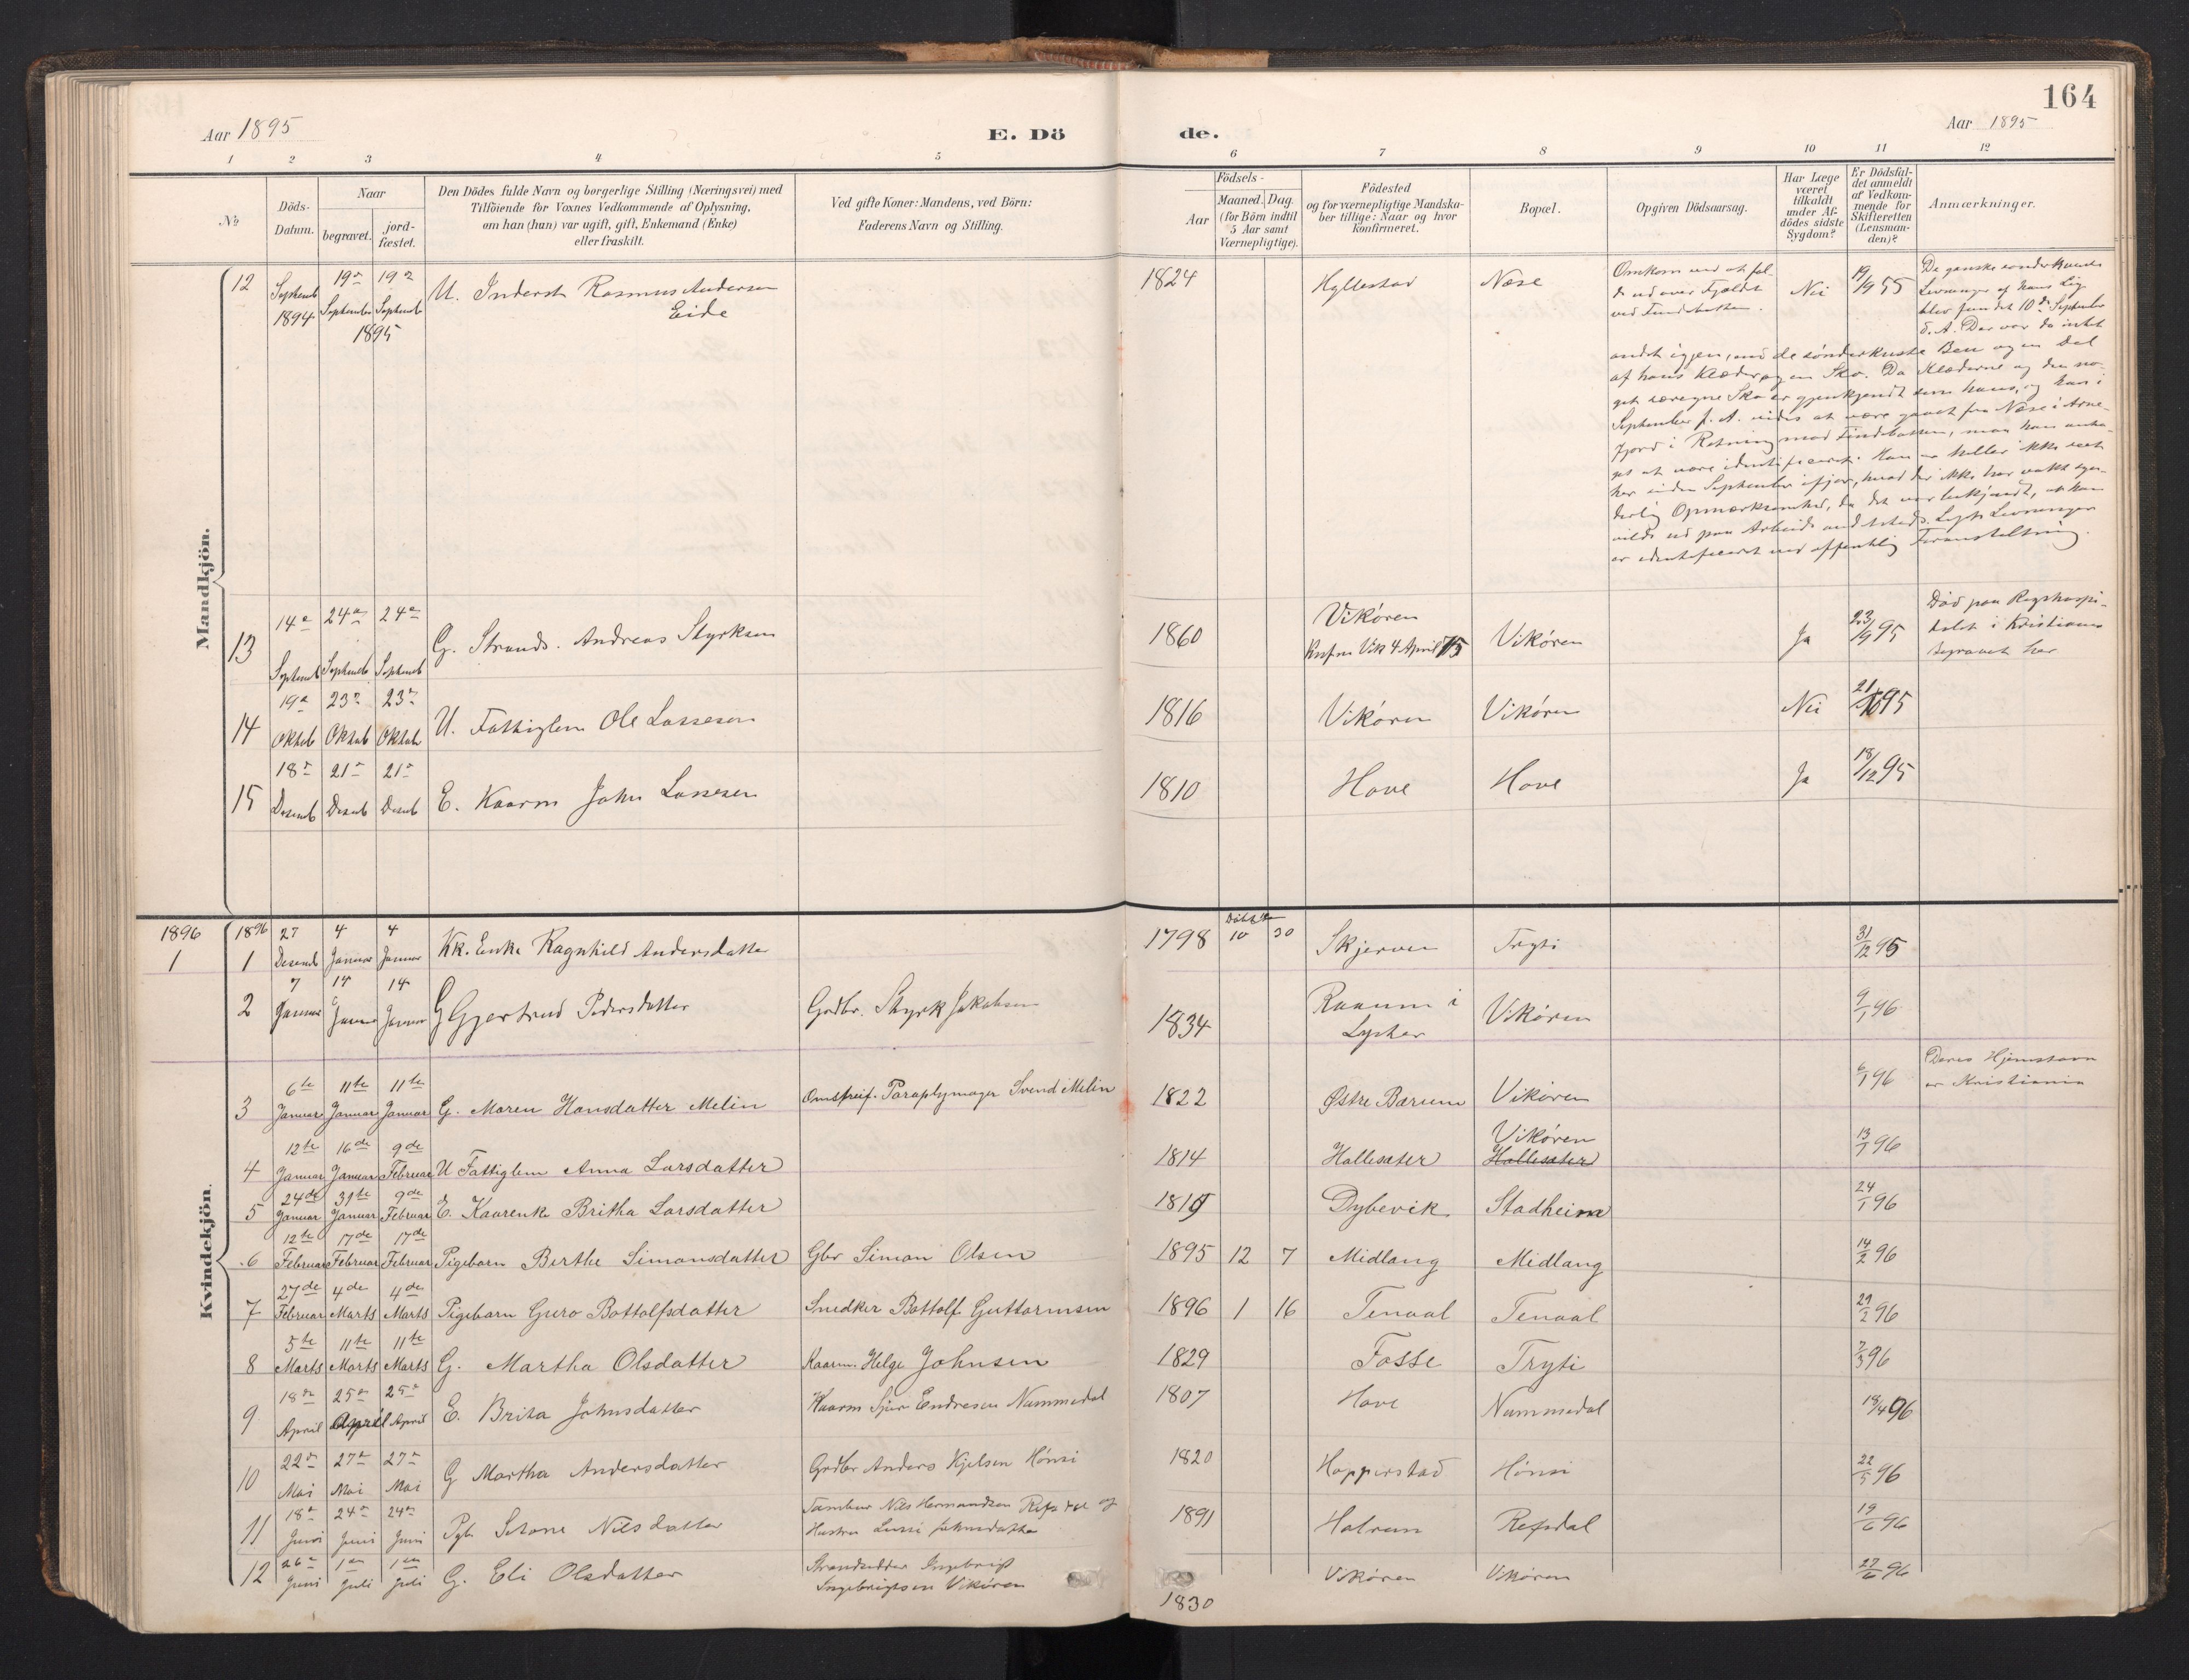 164
Aar 1895
E. Dö
de.
Aar 1895
1 2 3 4 5 6 7 8 9 10 11 12
No
Döds-
Datum.
Naar
begravet.
jord-
fæstet.
Den Dödes fulde Navn og borgerlige Stilling (Næringsvei) med
Tilföiende for Voxnes Vedkommende af Oplysning,
om han (hun) var ugift, gift, Enkemand (Enke)
eller fraskilt.
Ved gifte Koner: Mandens, ved Börn:
Faderens Navn og Stilling.
Födsels-
Aar
Maaned. Dag.
(for Börn indtil
5 Aar samt
Værnepligtige).
Födested
og for værnepligtige Mandska-
ber tillige: Naar og hvor
konfirmeret.
Bopæl.
Opgiven Dödsaarsag.
Har Læge
været
tilkaldt
under Af-
dödes sidste
Sygdom?
Er Dödsfal-
det anmeldt
af Vedkom-
mende for
Skifteretten
(Lensman-
den)?
Anmærkninger.
Mandkjön.
12 Septemb 1894 19de September 19de Septemb 1895 U. Inderst Rasmus Andersen Eide 1824 Hyllestad Næse Nei 19/9 95
Omkom ved at fal-
de ud over Fjeldet
De ganske sønderknuste
Levninger af hans Lig
blev fundet 10de September
d. A. Der var da intet
andet igjen, end de sønderknuste Ben og en Del
af hans Klæder og en Sko. Da Klæderne og den no-
get særegne Sko er gjenkjendt som hans, og han i
September f. A. vides at være gaaet fra Næse i Arne-
fjord i Retning mod Findebotten, maa han anta-
ges at være identificeret. Han er heller ikke seet
her siden September ifjor, hvad der ikke har vakt syn-
derlig Opmærksomhed, da det var bekjendt, at han
vilde ud paa Arbeide andetsteds. Ligets Levninger
er identificeret ved offentlig Foranstaltning.
13 14de Septemb 24de Septemb 24de Septemb G. Strands. Andreas Styrksen 1860 Vikøren Konfm Vik 4 April 75 Vikøren Ja 23/9 95
Død paa Rigshospi-
talet i Kristiania
begravet her
14 19de Oktob 23de Oktob 23de Oktob U. Fattiglem Ole Lassesen 1816 Vikøren Vikøren Nei 21/10 95
15 18de Desemb 21de Desemb 21de Desemb E. Kaarm John Lassesen 1810 Hove Hove Ja 18/12 95
Kvindekjön.
1896 1896
1 1 27 Desemb 4 Januar 4 Januar Kk. Enke Ragnhild Andersdatter 1798 Døbt 10 30 Skjerven Tryti 31/12 95
2 7 Januar 14 Januar 14 Januar G Gjertrud Pedersdatter Gardbr. Styrk Jakobsen 1834 Raaum i Lyster Vikøren 9/1 96
3 6te Januar 11te Januar 11te Januar G. Maren Hansdatter Melin Omstreif. Paraplymager Svend Melin 1822 Østre Bærum Vikøren 6/1 96 Deres Hjemstavn er Kristiania
4 12te Januar 16de Januar 9de Februar U Fattiglem Anna Larsdatter 1814 Hallesæter Vikøren Hallesæter 13/1 96
5 24de Januar 31te Januar 9de Februar E. Kaarenke Britha Larsdatter 1819 Dybevik Stadheim 24/1 96
6 12te Februar 17de Februar 17de Februar Pigebarn Berthe Simonsdatter Gbr Simon Olsen 1895 12 7 Midlang Midlang 14/2 96
7 27de Februar 4de Marts 4de Marts Pigebarn Guro Bottolfsdatter Snedker Bottolf Guttormsen 1896 1 16 Tenaal Tenaal 29/2 96
8 5te Marts 11te Marts 11te Marts G. Martha Olsdatter Kaarm. Helge Johnsen 1829 Fosse Tryti 7/3 96
9 18de April 25de April 25de April E. Brita Johnsdatter Kaarm Sjur Endresen Nummedal 1807 Hove Nummedal 18/4 96
10 22de Mai 27de Mai 27de Mai G Martha Andersdatter Grdbr Anders Kjelsen Hønsi 1820 Hopperstad Hønsi 22/5 96
11 18de Juni 24de Juni 24de Juni Pgb. Setone Nilsdatter Tambur Nils Hermandsen Refsdal og Hustru Lussi Johnsdatter 1891 Halrum Refsdal 19/6 96
12 26de Juni 1ste Juli 1ste Juli G. Eli Olsdatter Strandsidder Ingebrigt Ingebrigtsen Vikøren 1830 Vikøren Vikøren 27/6 96